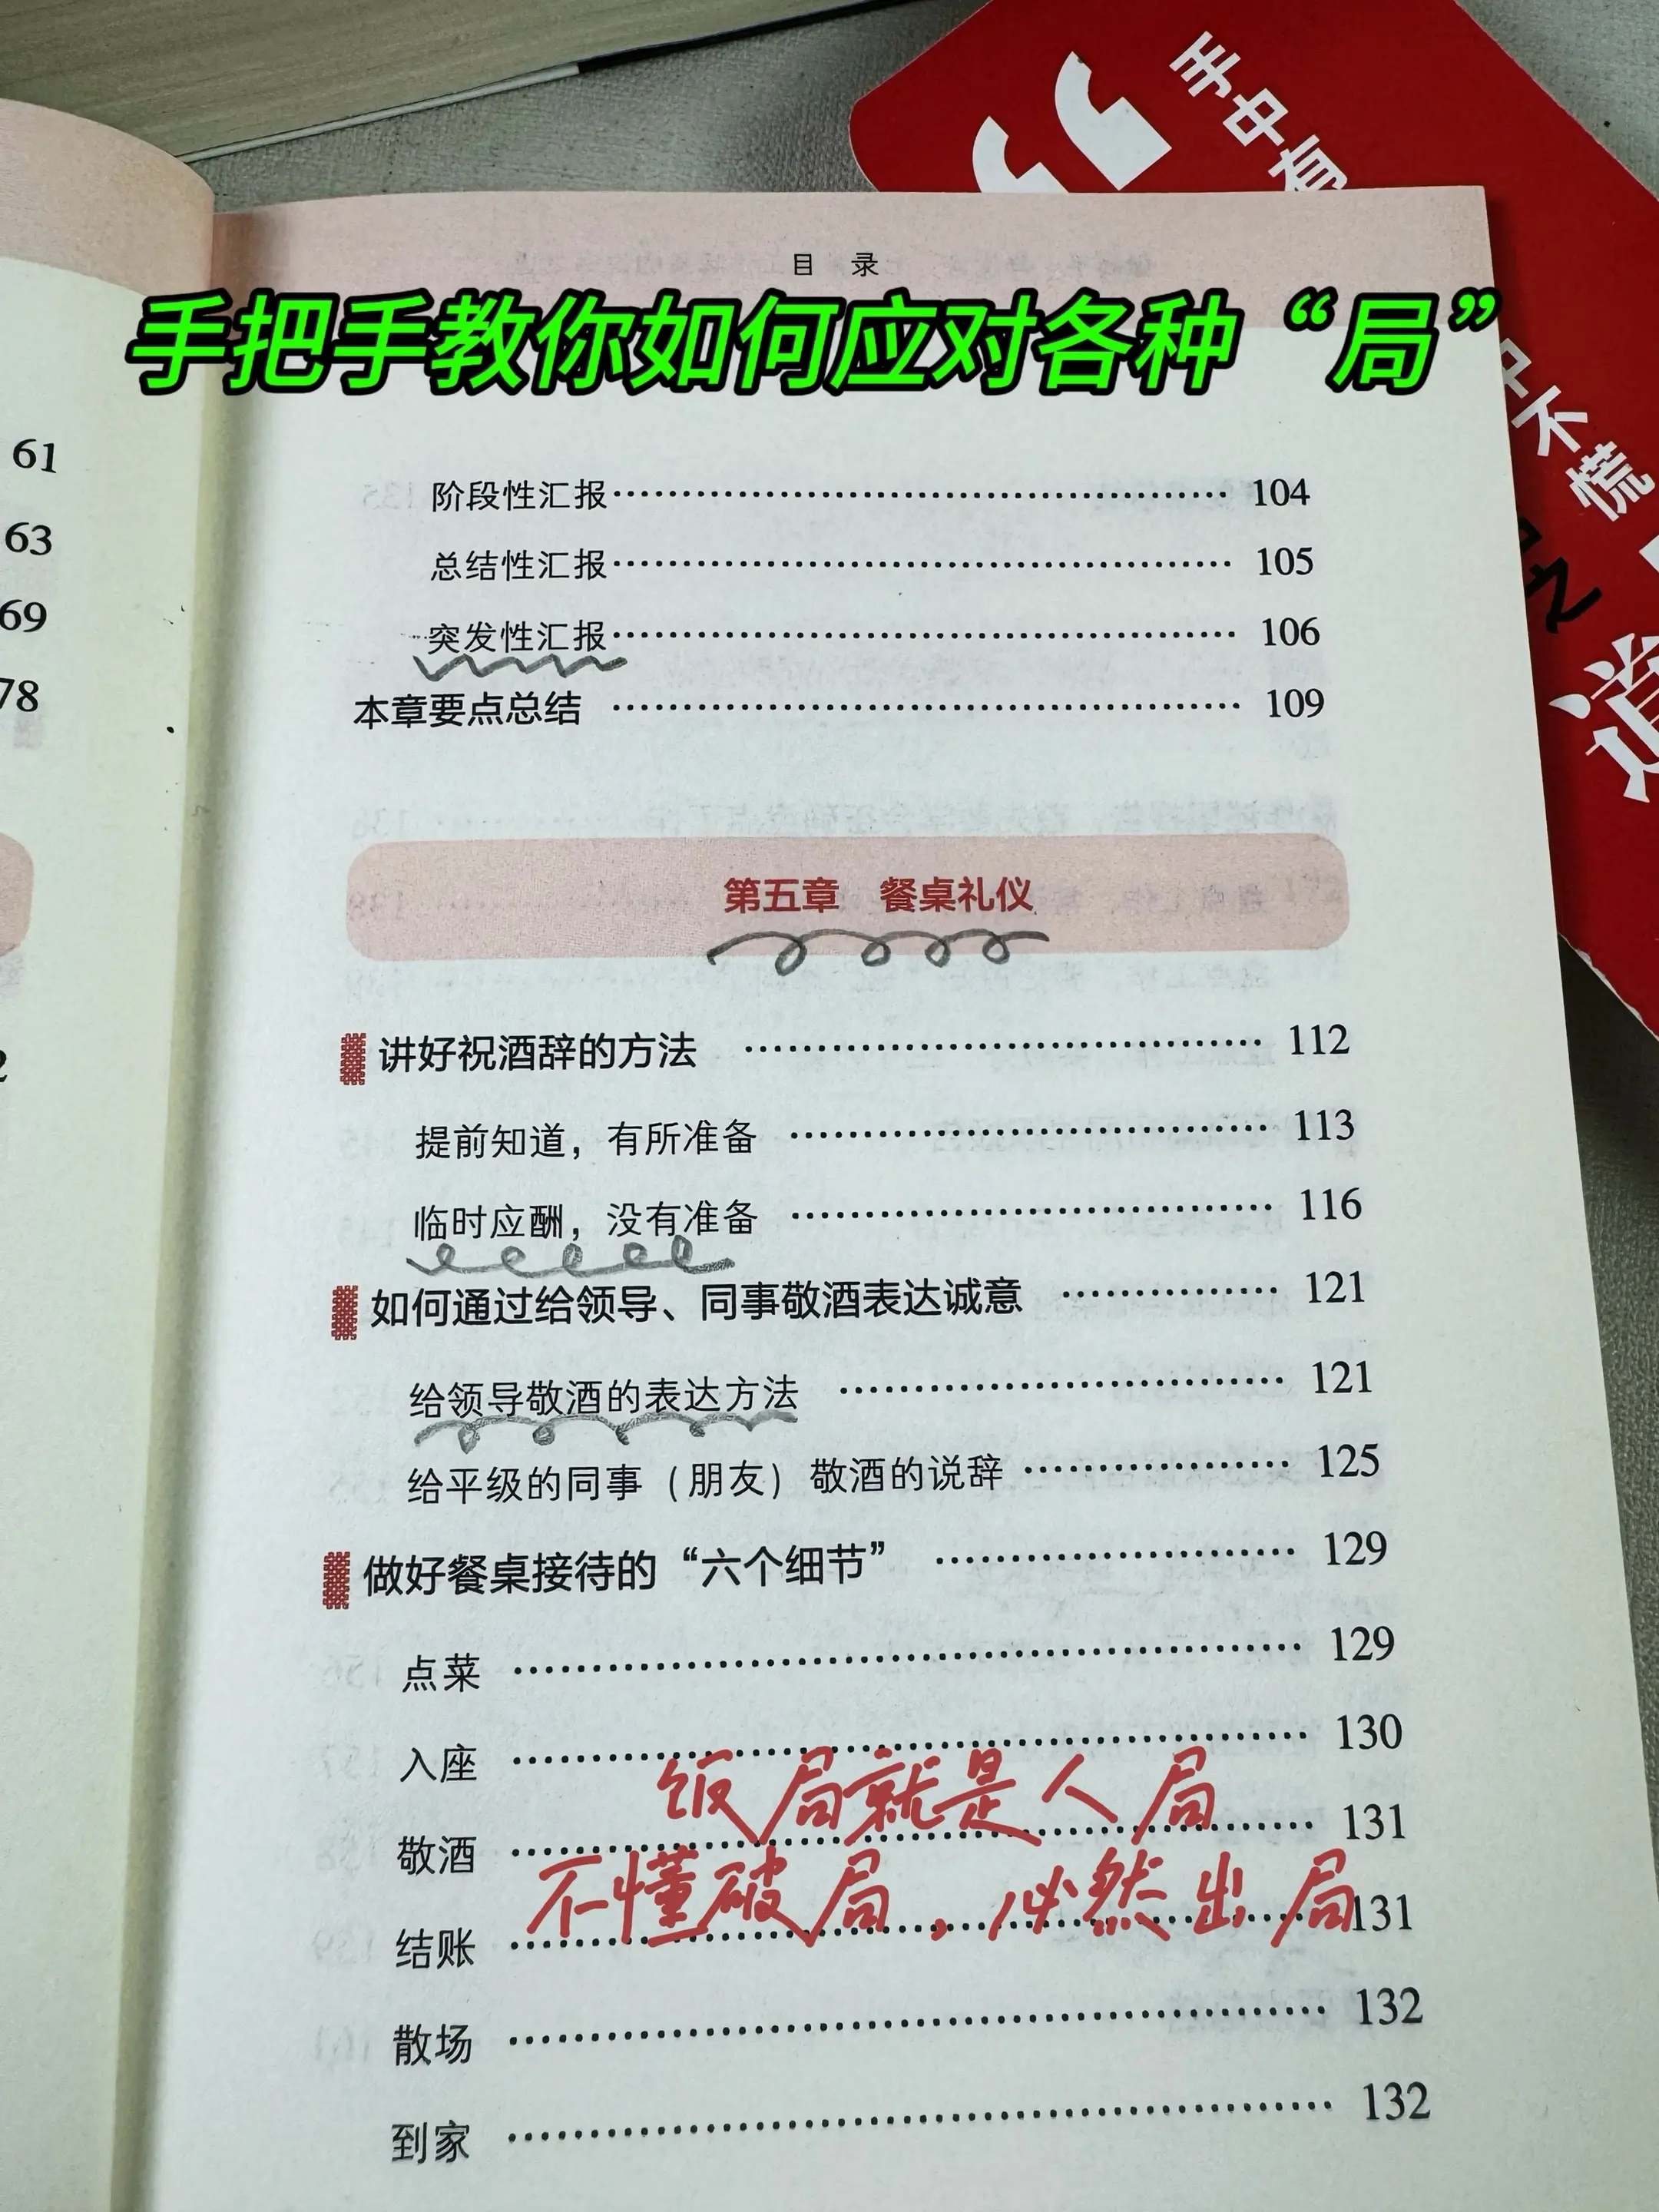 手中有
中不慌
道
目 录
手把手教你如何应对各种“局”
61
63
69
78
2
阶段性汇报 104
总结性汇报 105
突发性汇报 106
本章要点总结 109
第五章 餐桌礼仪
讲好祝酒辞的方法 112
提前知道，有所准备 113
临时应酬，没有准备 116
如何通过给领导、同事敬酒表达诚意 121
给领导敬酒的表达方法 121
给平级的同事（朋友）敬酒的说辞 125
做好餐桌接待的“六个细节” 129
点菜 129
入座 130
饭局就是人局
敬酒 131
不懂破局，必然出局
结账 131
散场 132
到家 132